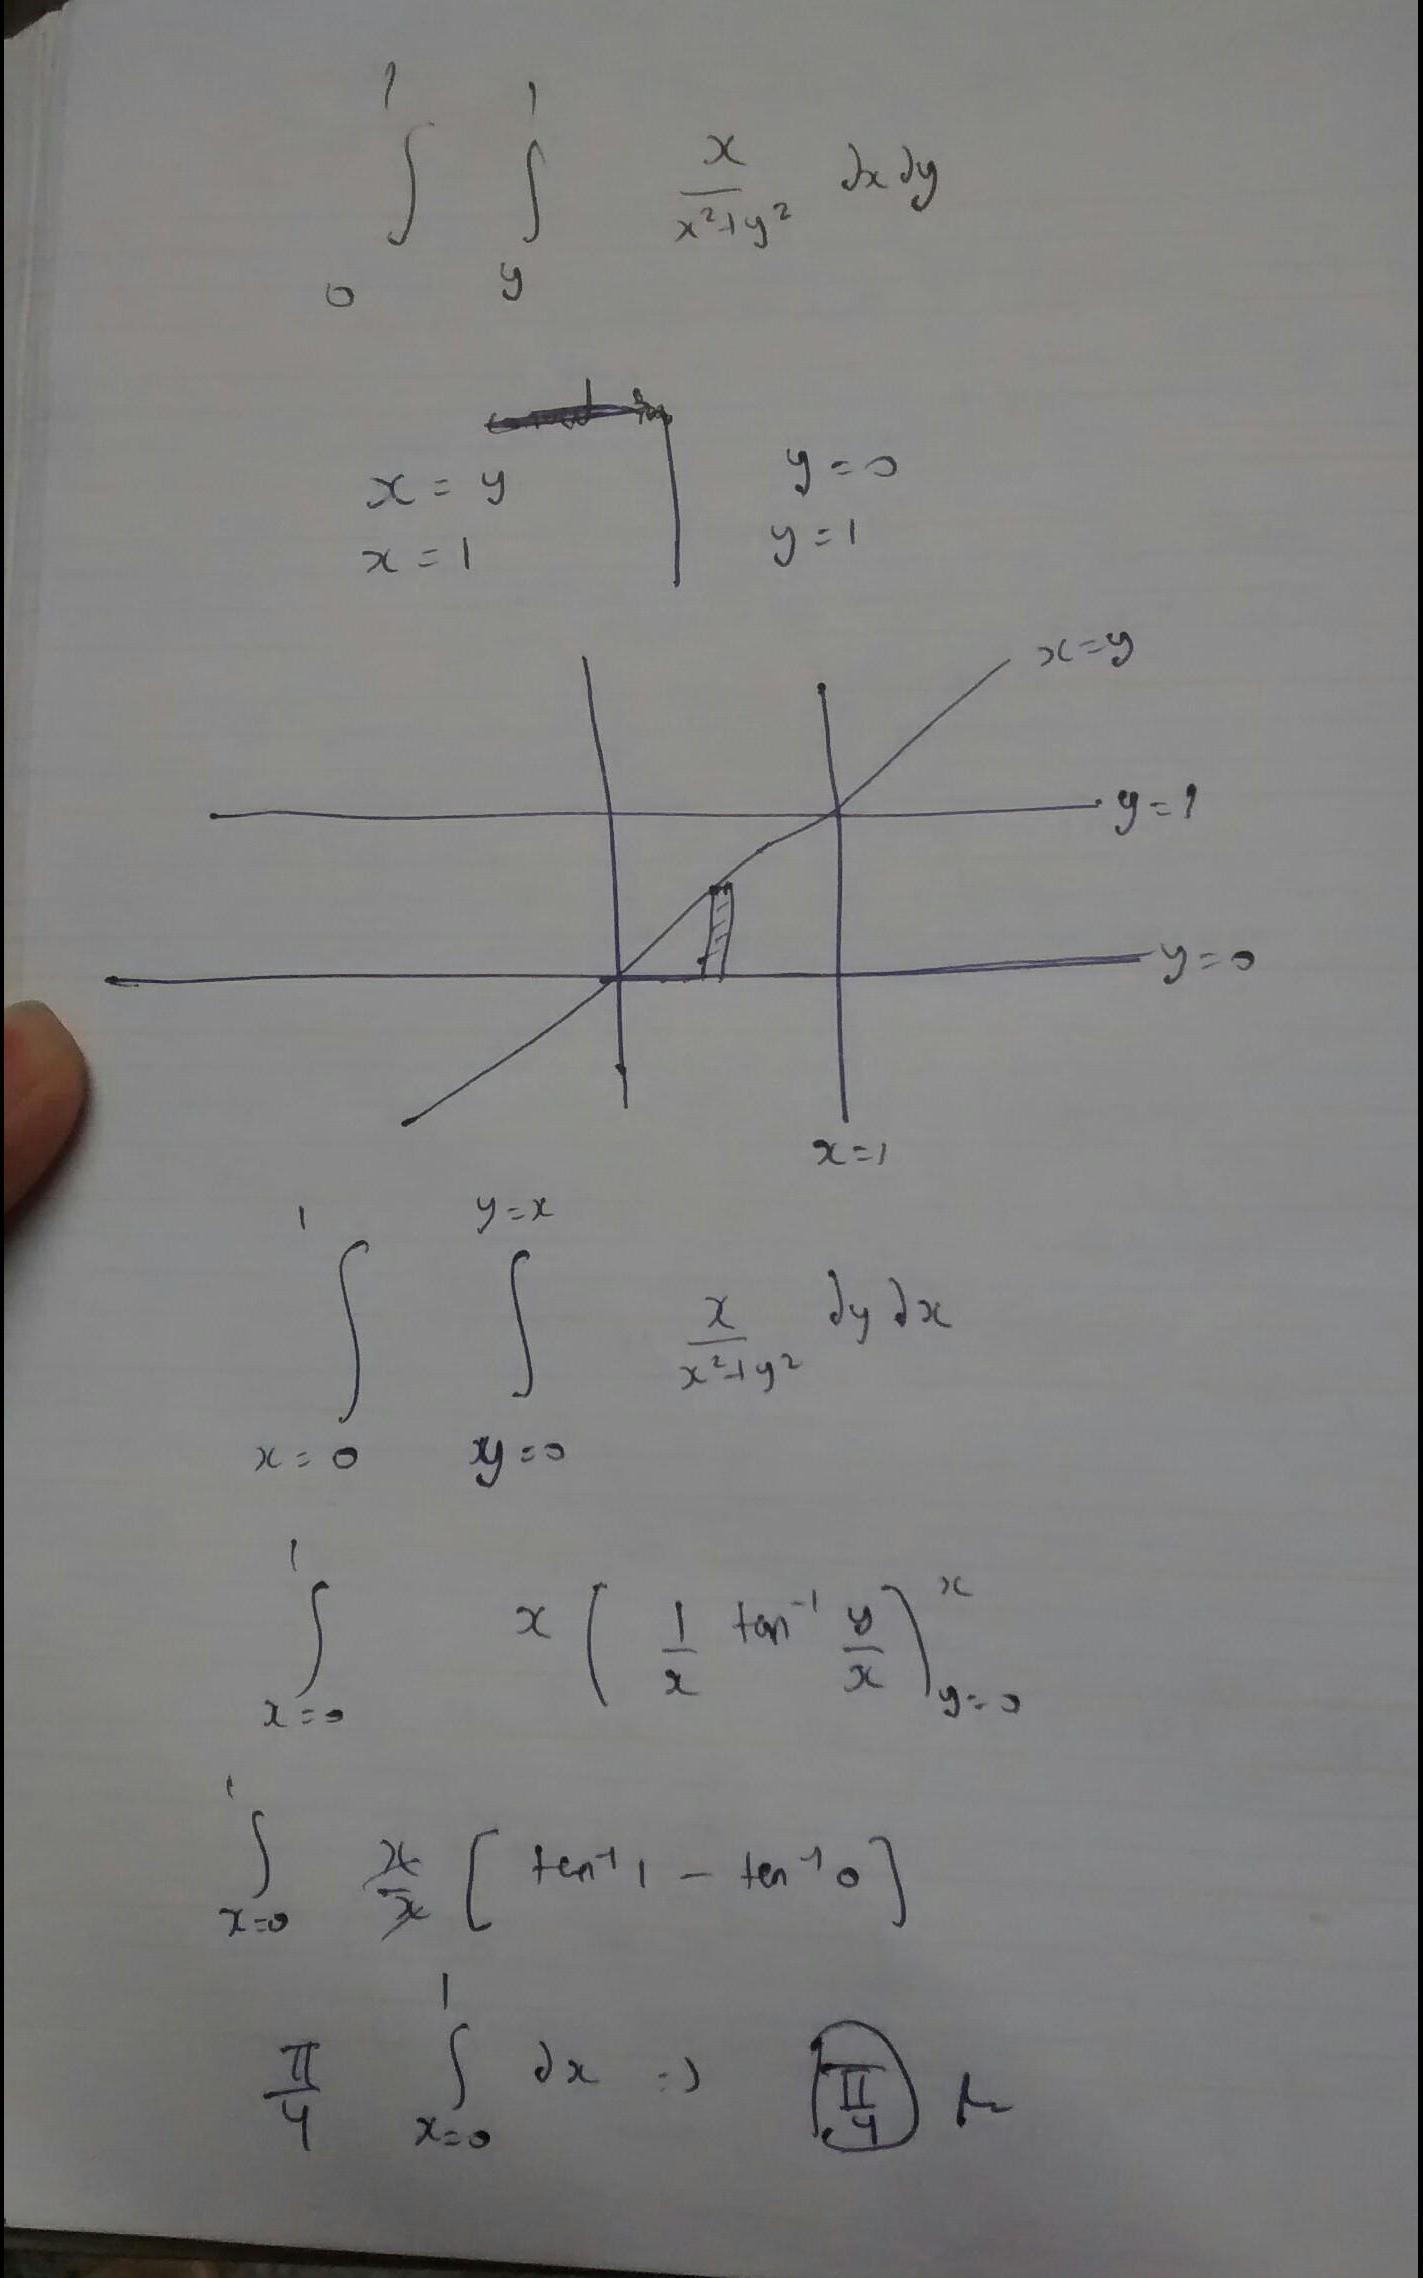 ∫₀¹ ∫_y¹ x/(x²+y²) ∂x ∂y
x = y | y = 0
x = 1 | y = 1
x = y
y = 1
y = 0
x = 1
∫_{x=0}^{1} ∫_{y=0}^{y=x} x/(x²+y²) ∂y ∂x
∫_{x=0}^{1} x ( 1/x tan⁻¹ y/x )_{y=0}^{x}
∫_{x=0}^{1} x/x [ tan⁻¹ 1 − tan⁻¹ 0 ]
π/4 ∫_{x=0}^{1} ∂x ⇒ π/4